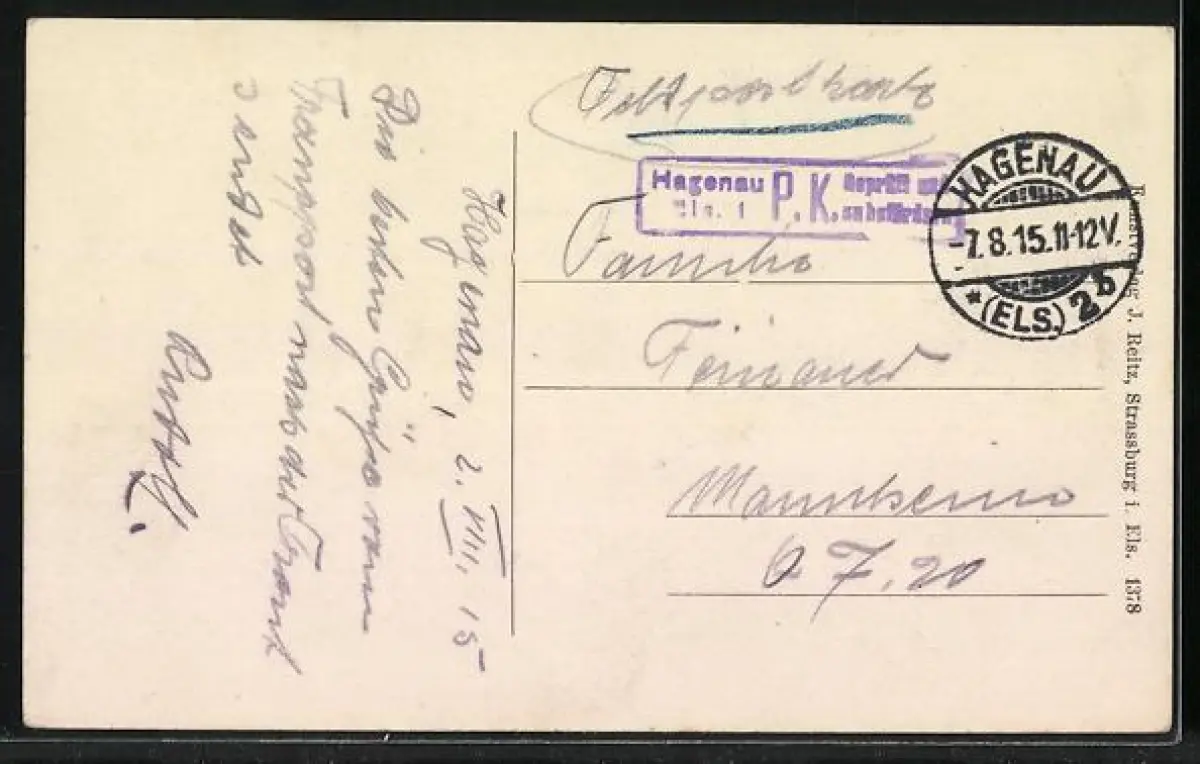 Hagenau, 2. VIII. 15
Die besten Grüße vom
Transport nach der Front
sendet
Rudolf.
Feldpostkarte
Hagenau P. K. Geprüft und
Els. 1 zu befördern
HAGENAU
-7.8.15.11-12V.
* (ELS.) 2b
Familie
Mannheim
7.20
J. Reitz, Strassburg i. Els. 1378